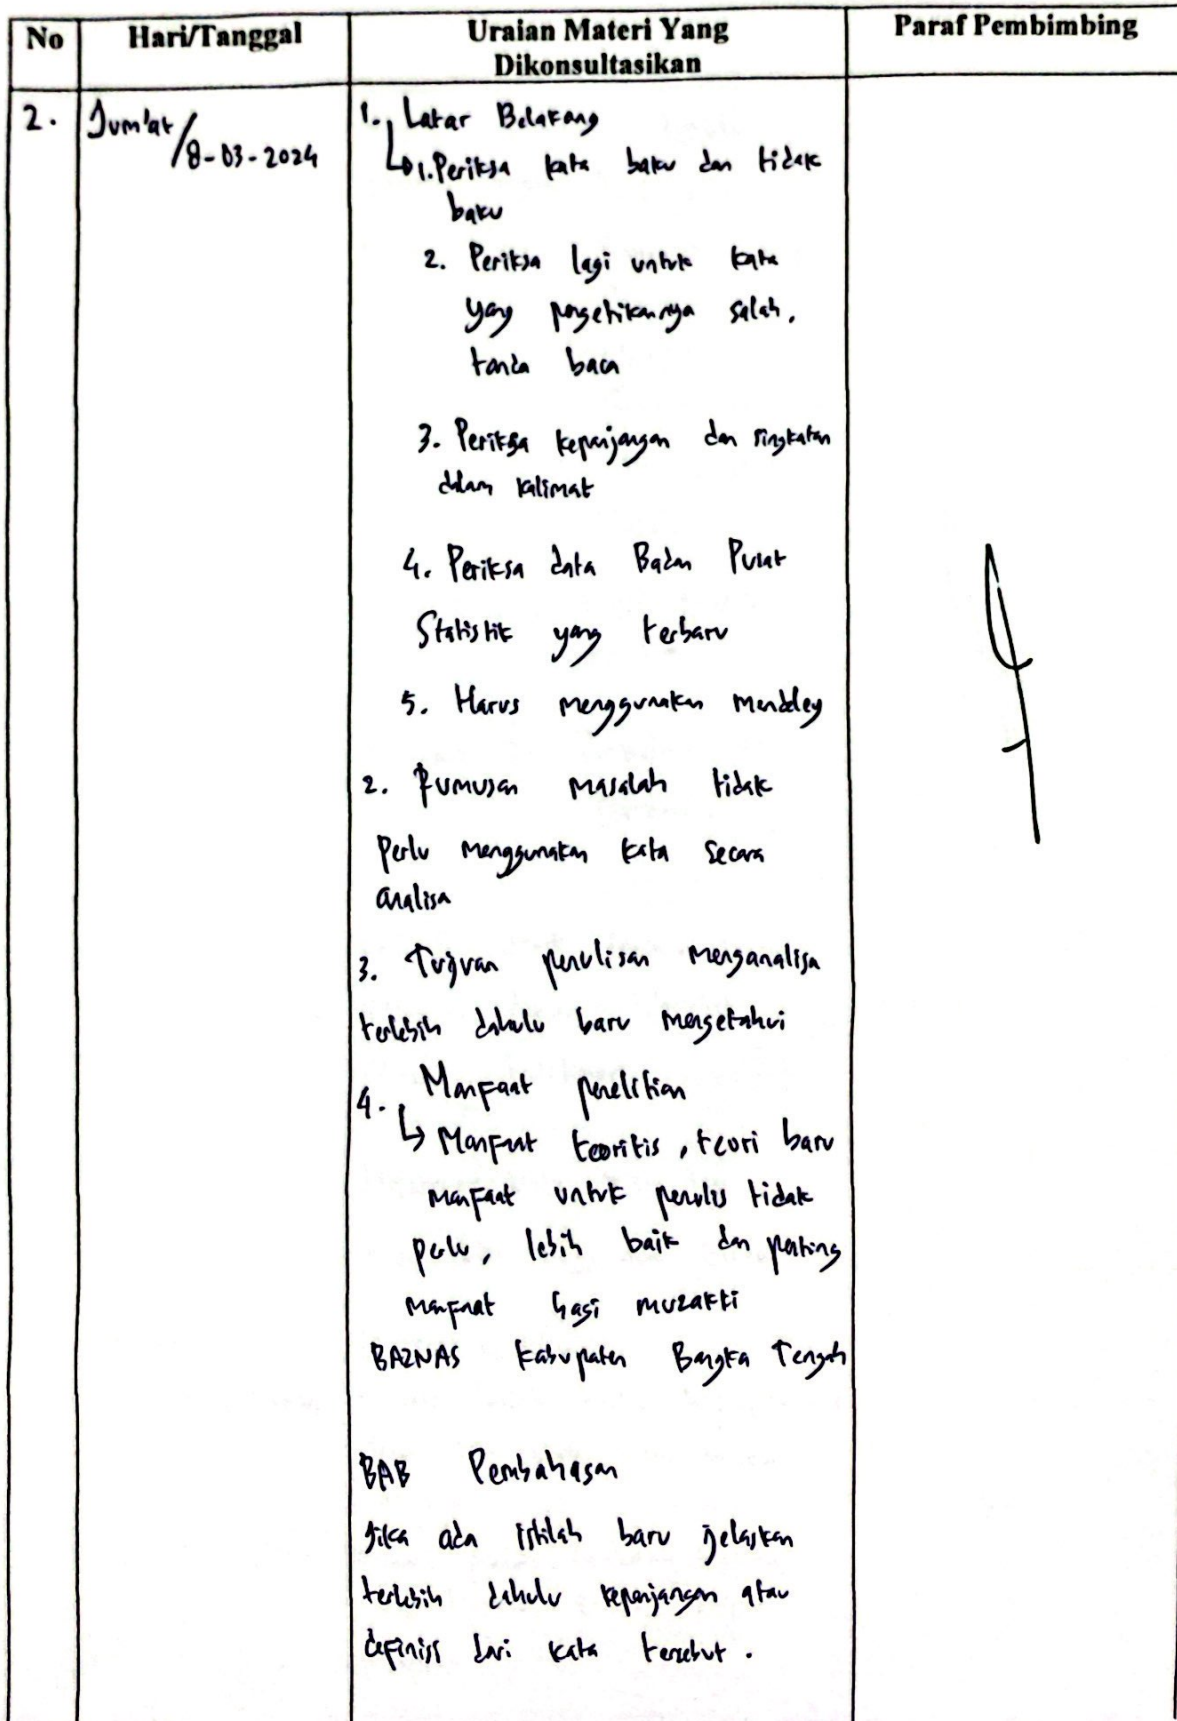 No Hari/Tanggal Uraian Materi Yang Dikonsultasikan Paraf Pembimbing
2. Jum'at/8-03-2024
1. Latar Belakang
1. Periksa kata baku dan tidak
baku
2. Periksa lagi untuk kata
yang pengetikannya salah,
tanda baca
3. Periksa kepanjangan dan singkatan
dalam kalimat
4. Periksa data Badan Pusat
Statistik yang terbaru
5. Harus menggunakan Menddley
2. Rumusan masalah tidak
perlu menggunakan kata secara
analisa
3. Tujuan penulisan menganalisa
terlebih dahulu baru mengetahui
4. Manfaat penelitian
Manfaat teoritis, teori baru
manfaat untuk penulis tidak
perlu, lebih baik dan penting
manfaat bagi muzakki
BAZNAS Kabupaten Bangka Tengah
BAB Pembahasan
Jika ada istilah baru jelaskan
terlebih dahulu kepanjangan atau
definisi dari kata tersebut.